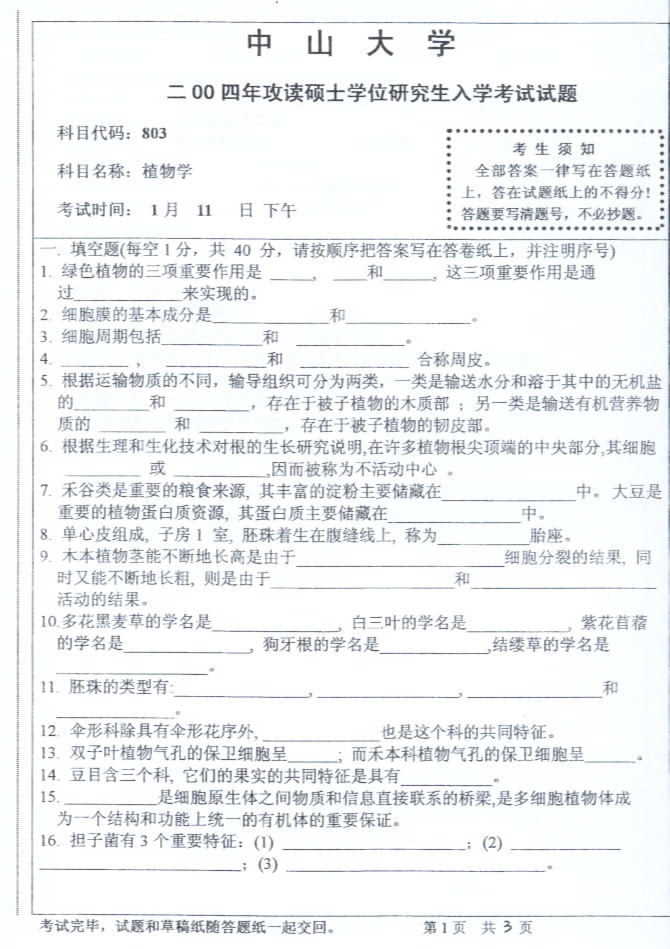 中 山 大 学
二00四年攻读硕士学位研究生入学考试试题
科目代码：803
科目名称：植物学
考试时间： 1月 11 日 下午
考 生 须 知
全部答案一律写在答题纸
上，答在试题纸上的不得分！
答题要写清题号，不必抄题。
一. 填空题(每空1分，共 40 分，请按顺序把答案写在答卷纸上，并注明序号)
1. 绿色植物的三项重要作用是 _____, ____和______, 这三项重要作用是通
过_____________来实现的。
2. 细胞膜的基本成分是______________和_______________。
3. 细胞周期包括____________和 _____________。
4. ________ , ____________和 _____________ 合称周皮。
5. 根据运输物质的不同，输导组织可分为两类，一类是输送水分和溶于其中的无机盐
的_________和 _________，存在于被子植物的木质部 ；另一类是输送有机营养物
质的 ________ 和 __________，存在于被子植物的韧皮部。
6. 根据生理和生化技术对根的生长研究说明,在许多植物根尖顶端的中央部分,其细胞
_________ 或 ___________,因而被称为不活动中心 。
7. 禾谷类是重要的粮食来源, 其丰富的淀粉主要储藏在________________中。大豆是
重要的植物蛋白质资源, 其蛋白质主要储藏在________________中。
8. 单心皮组成, 子房1 室, 胚珠着生在腹缝线上, 称为___________胎座。
9. 木本植物茎能不断地长高是由于_________________________细胞分裂的结果, 同
时又能不断地长粗, 则是由于______________________和______________________
活动的结果。
10.多花黑麦草的学名是_______________, 白三叶的学名是____________, 紫花苜蓿
的学名是_______________, 狗牙根的学名是_____________,结缕草的学名是
__________________。
11. 胚珠的类型有:________________, _________________, ________________和
______________。
12. 伞形科除具有伞形花序外, ______________也是这个科的共同特征。
13. 双子叶植物气孔的保卫细胞呈______; 而禾本科植物气孔的保卫细胞呈______。
14. 豆目含三个科, 它们的果实的共同特征是具有___________。
15. ___________是细胞原生体之间物质和信息直接联系的桥梁,是多细胞植物体成
为一个结构和功能上统一的有机体的重要保证。
16. 担子菌有3个重要特征：(1) ______________________；(2) _____________
________________________；(3) _______________________________。
考试完毕，试题和草稿纸随答题纸一起交回。 第1页 共 3 页